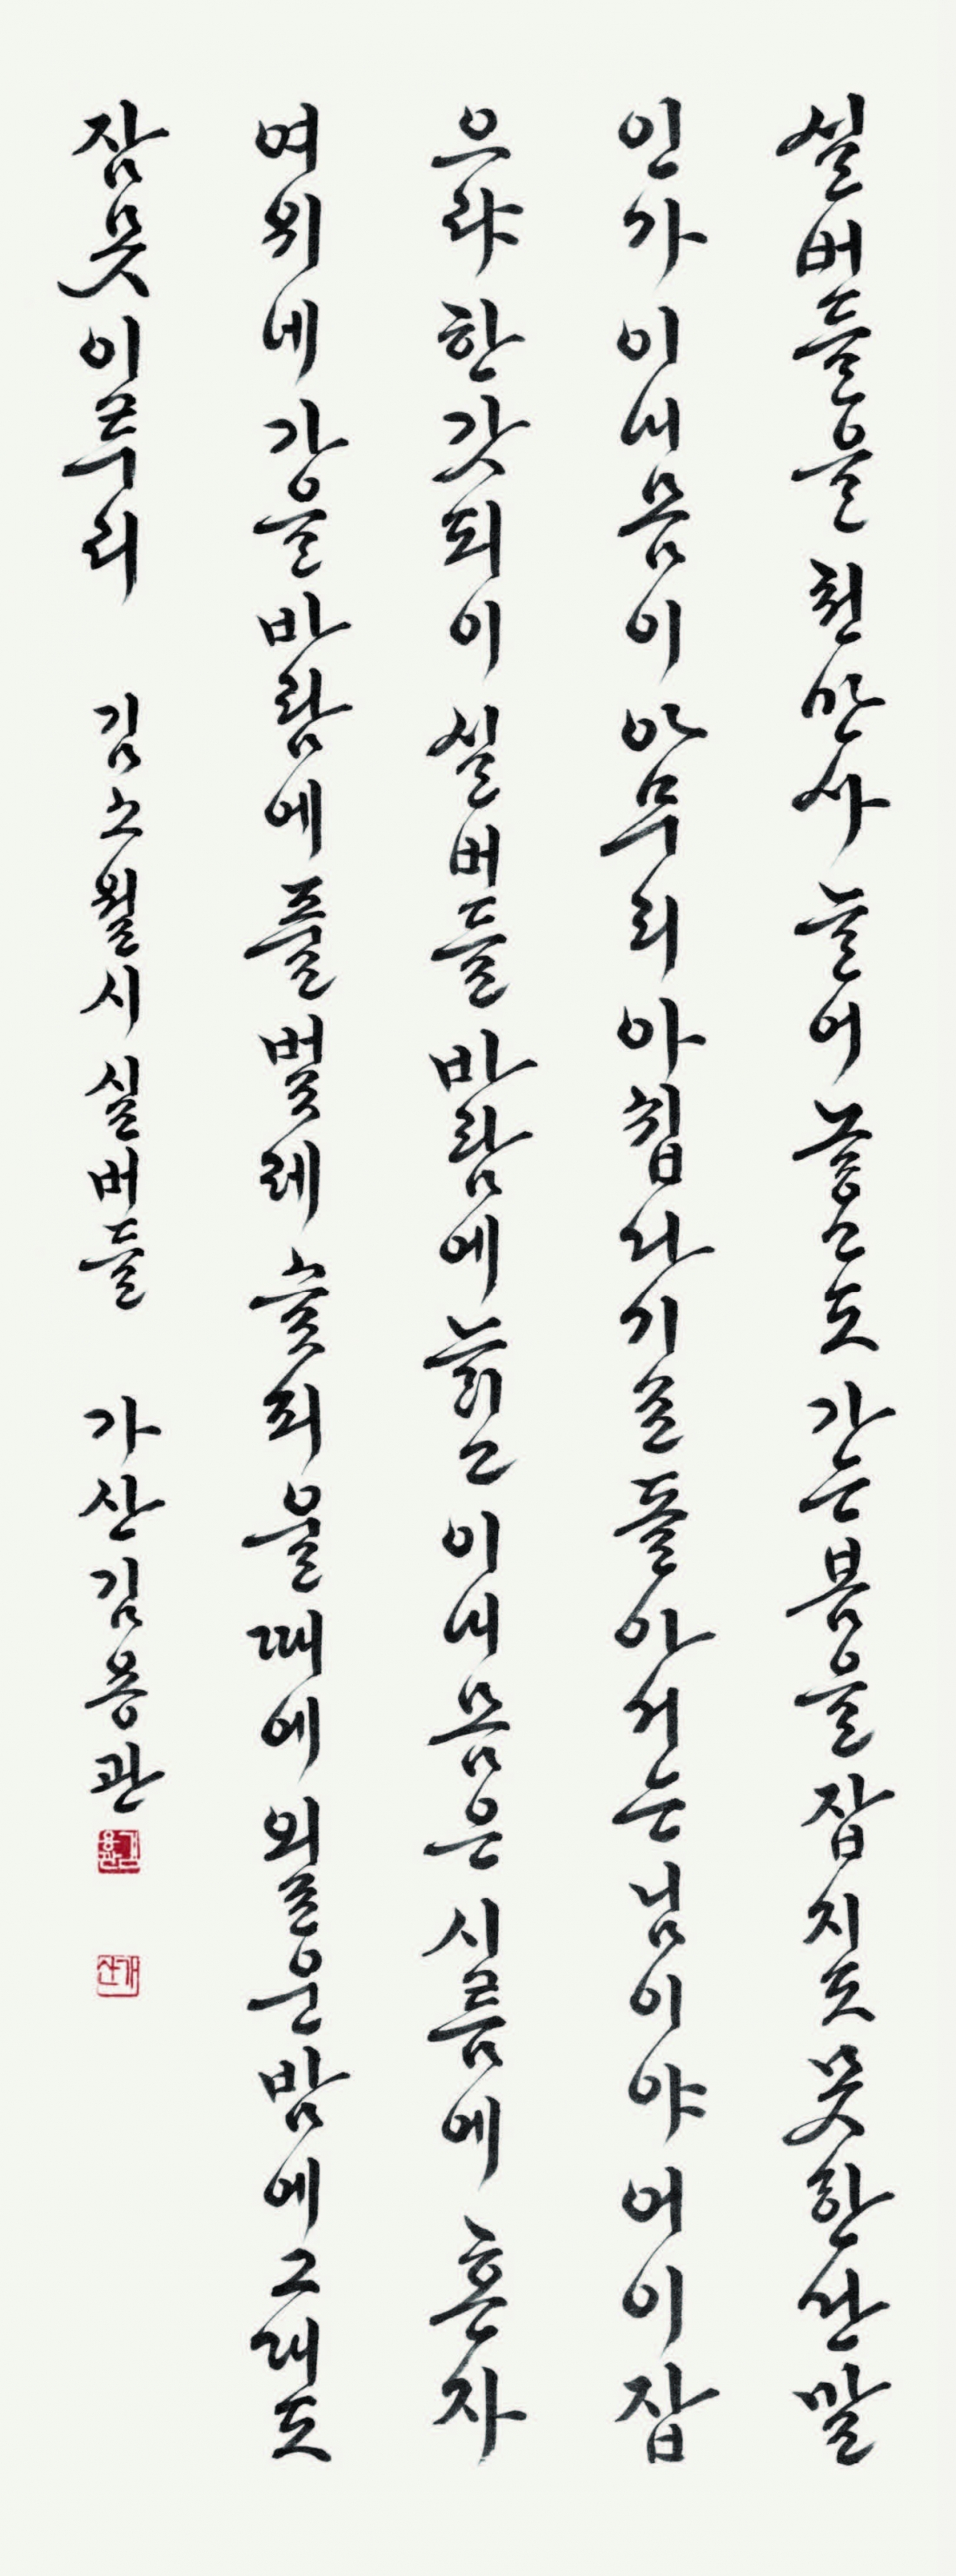 실버들을 천만사 늘어 놓고도 가는봄을 잡지도 못한단말
인가 이내몸이 아무리 아쉽다기로 돌아서는 님이야 어이잡
으랴 한갓되이 실버들 바람에 늙고 이내몸은 시름에 혼자
여위네 가을바람에 풀벌레 슬피 울때에 외로운밤에 그대도
잠못이루리 김소월시 실버들 가산 김용관
김용관
가산